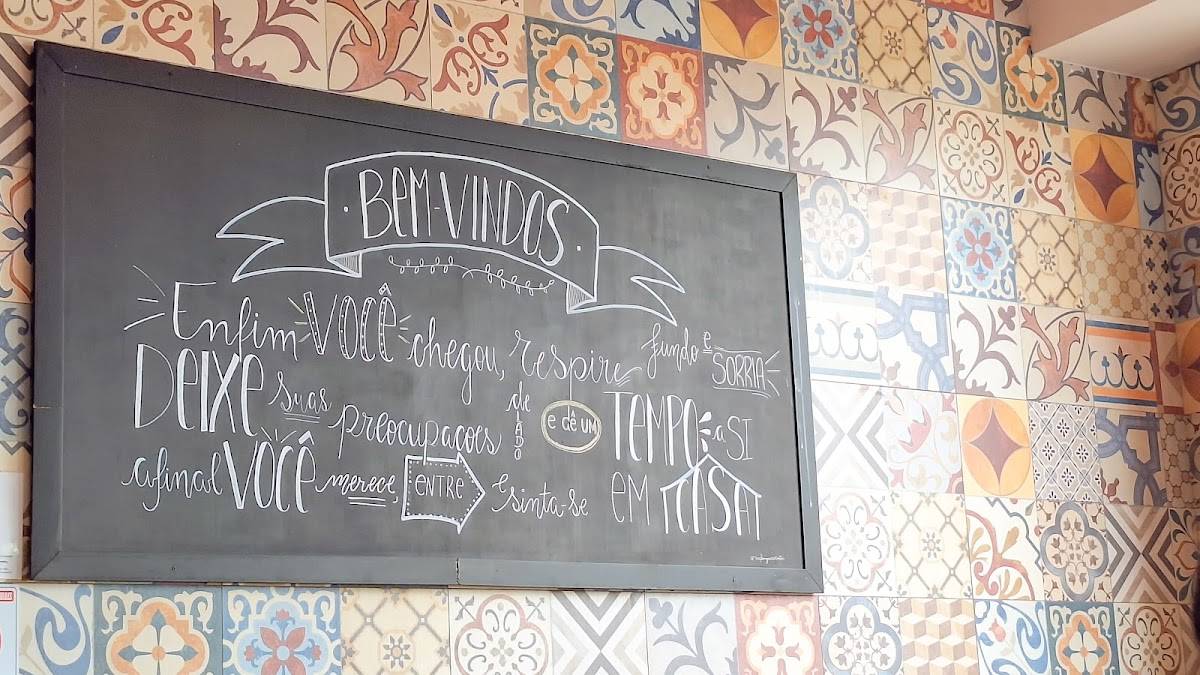 BEM-VINDOS
Enfim VOCÊ chegou, respire fundo e SORRIA
DEIXE suas preocupações de LADO e dê um TEMPO a SI
afinal VOCÊ merece, ENTRE e sinta-se EM CASA!